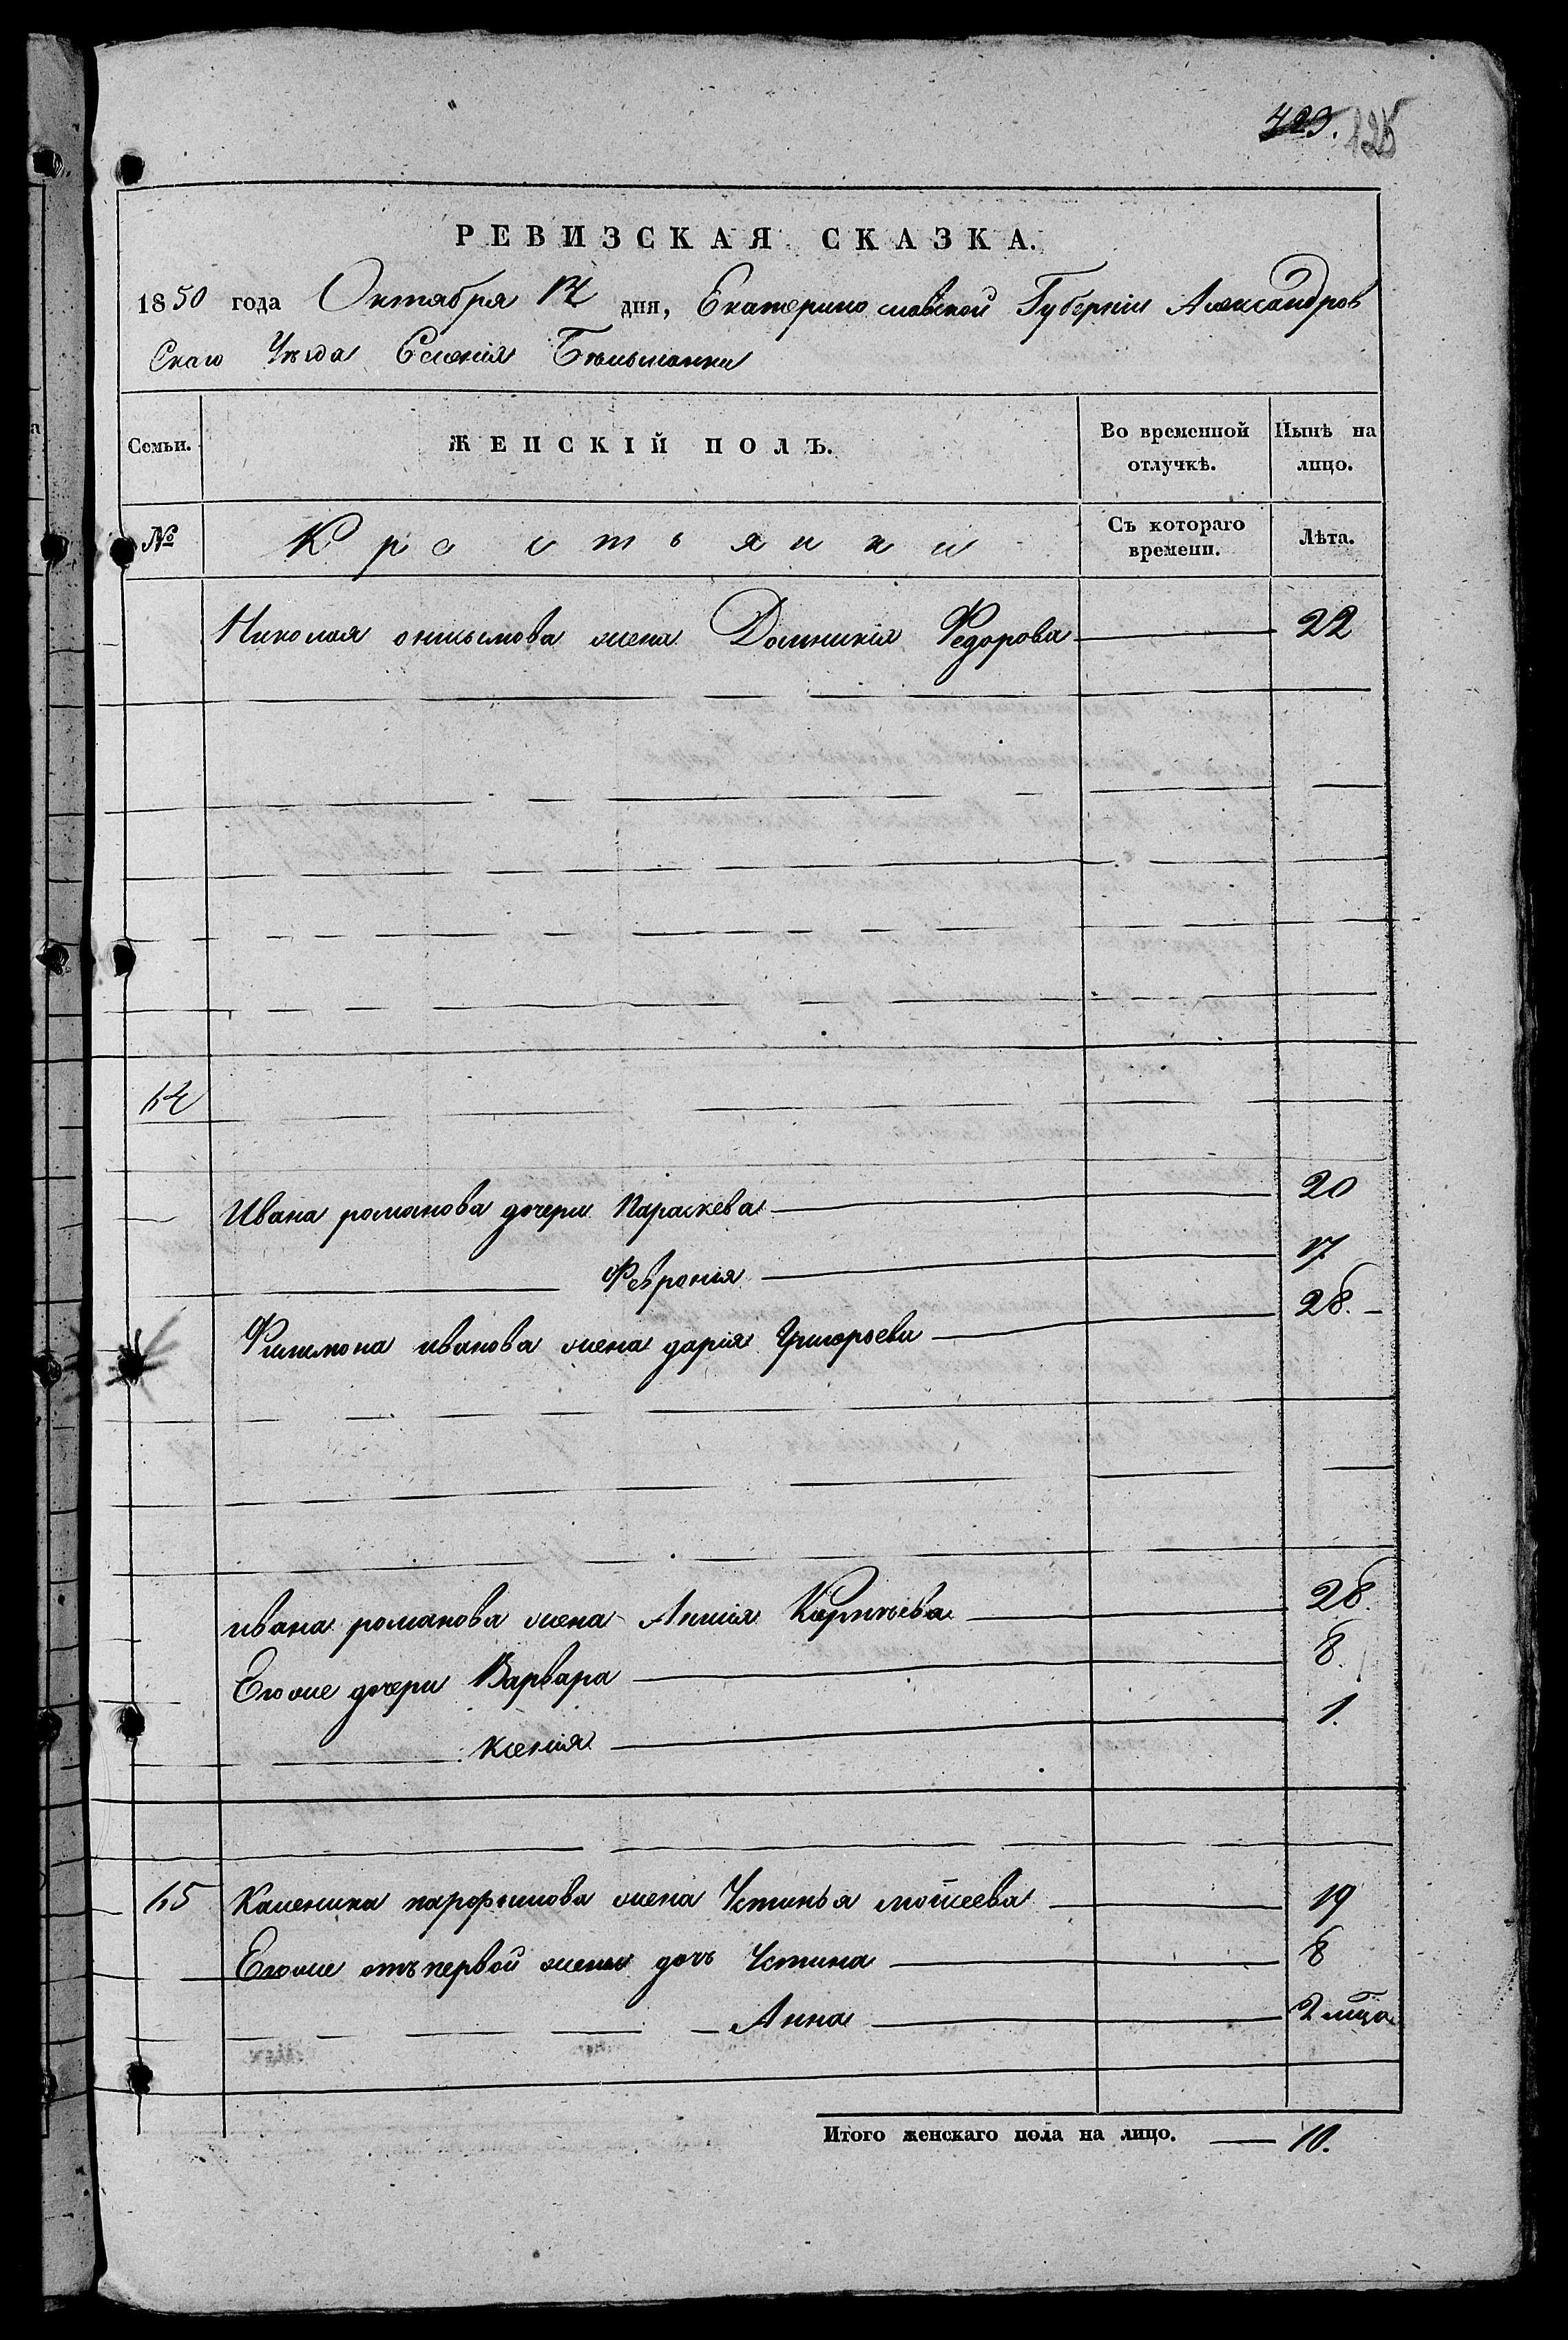 423. 125
РЕВИЗСКАЯ СКАЗКА.
1850 года Октября 14 дня, Екатеринославской Губерніи Александров
скаго Уезда Селенія Бельманки
Семьи. ЖЕНСКІЙ ПОЛЪ. Во временной отлучкѣ. Нынѣ на лицо.
№ Крестьянки Съ котораго времени. Лѣта.
Николая онисымова жена Домникія Федорова 22
64
Ивана романова дочери Параскева 20
Феврония 17
Филимона иванова жена дарія Григорьева 28.
ивана романова жена Анна 28.
Егоже дочери Варвара 8.
Ксенія 1.
65 Каленика парфынова жена Устинья моисеева 19
Егоже отъ первой жены дочь Устина 8
Анна 2 мца
Итого женскаго пола на лицо. 10.